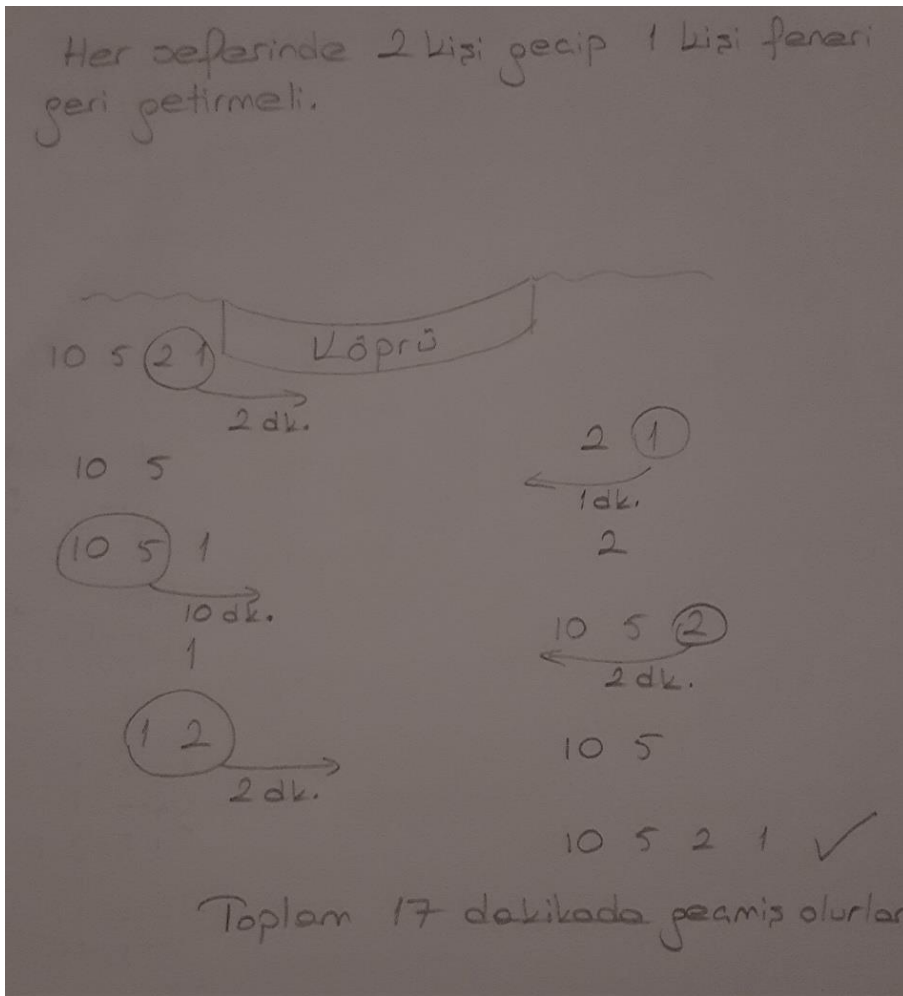 Her seferinde 2 kişi geçip 1 kişi feneri
geri getirmeli.
Köprü
10 5 2 1
2 dk.
2 1
1 dk.
10 5
2
10 5 1
10 dk.
10 5 2
2 dk.
1
10 5
1 2
2 dk.
10 5 2 1 ✓
Toplam 17 dakikada geçmiş olurlar